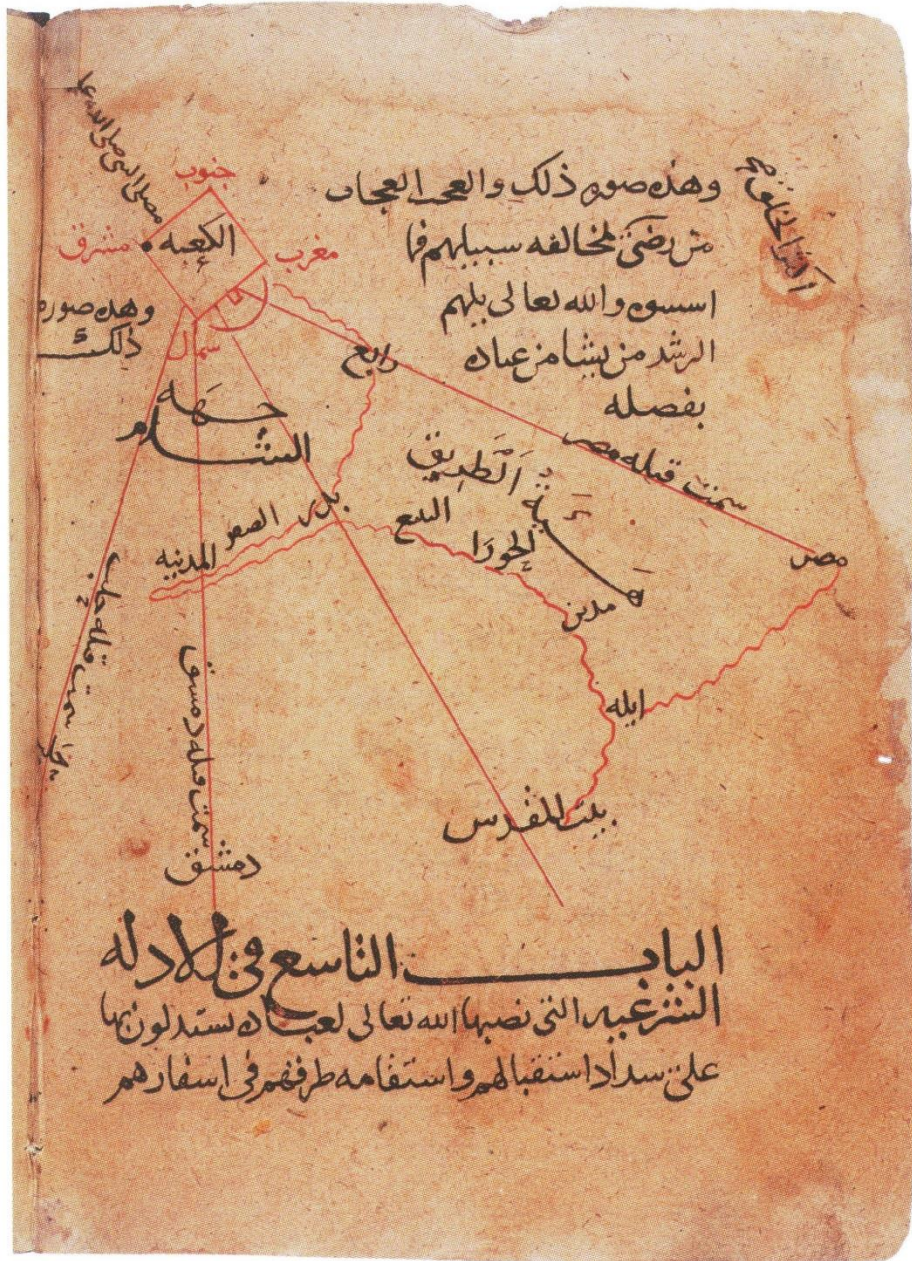 وهذه صوره ذلك والعجب العجاب
من رضى لمخالفه سبيلهم فما
اسسوه والله تعالى يلهم
الرشد من يشا من عباده
بفضله
اكثر الخلق
مصلى النبى صلى الله عل
جنوب
مشرق
الكعبه
مغرب
شمال
وهذه صوره
ذلك
جهه
الشام
رابغ
سمت قبله مصر
مصر
هيئة الطريق
الينبع
الحورا
مدين
ايله
بدر
الصفر
المدينه
سمت قبله حلب
سمت قبله دمشق
دمشق
بيت المقدس
الباب التاسع فى الادله
الشرعيه التى نصبها الله تعالى لعباده يستدلون بها
على سداد استقبالهم واستقامه طرقهم فى اسفارهم